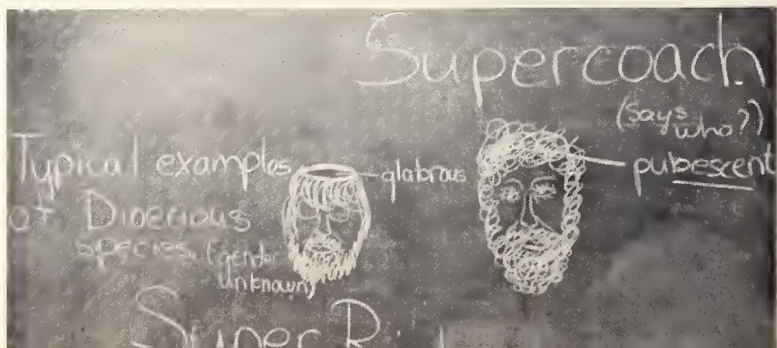 Supercoach
(says who?)
Typical examples
of Dioecious
species. (gender
unknown)
glabrous
pubescent
Super